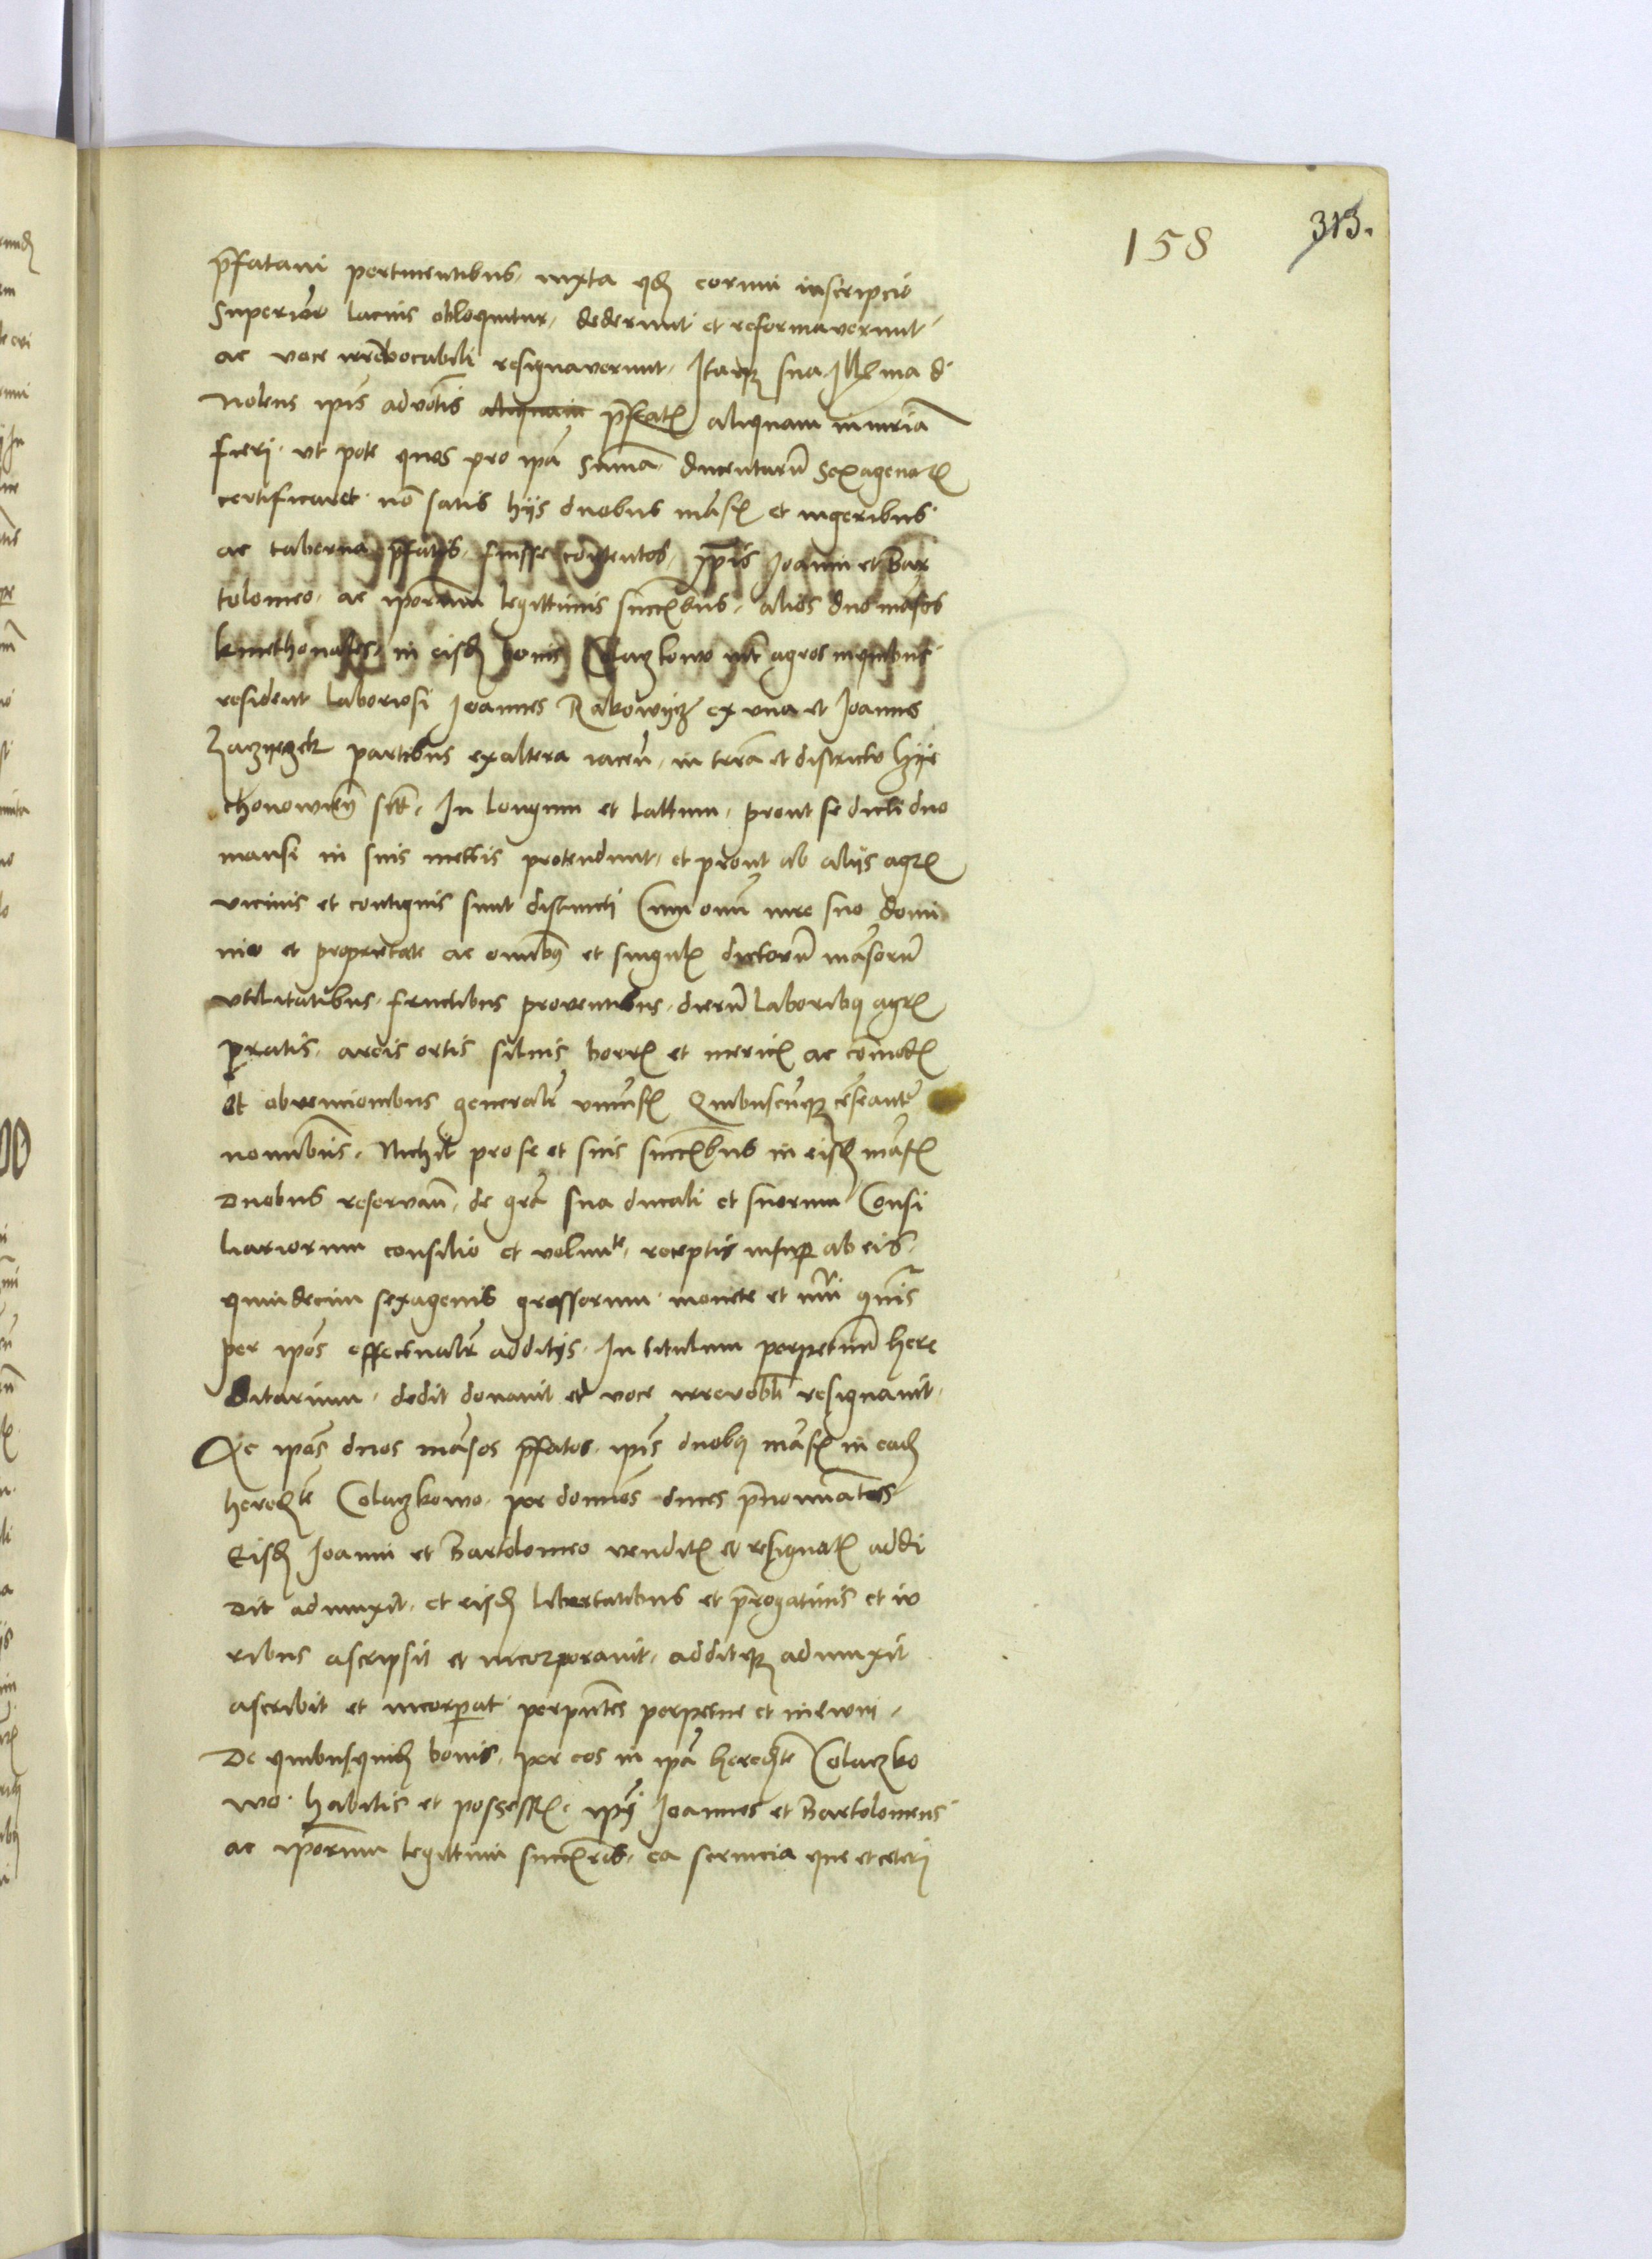 158
313.
p̄fatam pertinentibus, iuxta qđ eorum inscripcio
superiꝰ lacius obloquitur, dederunt et reformaverunt
ac voce irrevocabili resignaverunt, Itaqꝫ sua Illꝫma d
Nolens ipīs advōtis aliquam p̄fatꝭ aliquam iniuriā
fieri, ut pote quos pro ipā summa ducentarū sexagenaꝝ
certificaret, nō satis hijs duobus māsꝭ et iugeribus
ac taberna p̄fatis, fuisse contentos, ip̄īs Joanni et Bar
tolomeo, ac ip̄orum legittimis succꝭbus, alios duos māsos
kmethonales, in eisđ bonis Colaczkowo int̄ agros in quibus
resident laboriosi Joannes Rakowijcz ex una et Joannes
Zaczijegek partibus ex altera iaceñ, in terrā et districtu Czije
chonowieñ sitꝭ, In longum et lattum, prout se dicti duo
mansi in suis mettis protendunt, et prout ab alijs agrꝭ
vicinis et contiguis sunt distincti Cum omī iure suo domi
nio et proprietate ac omnibꝫ et singulꝭ dictorū māsorū
utilitatibus, fructibus proventibus, dierū laboribꝫ agrꝭ
pratis, areis ortis silvis borrꝭ et mericꝭ ac cōmodꝭ
et obvencionibus generalr̄ univsꝭ Quibuscūqꝫ cēseantr̄
nominibus, Nichil pro se et suis succꝭbus in eisđ māsꝭ
duobus reservañ, de grā sua ducali et suorum Consi
liariorum consilio et volunte, receptis insuper ab eis
quindecim sexagenis grossorum monete et nūi qn̄is
per ipōs effectualr̄ additijs, In titulum perpetuū here
ditarium, dedit donavit et voce irrevobli resignavit,
Ac ipōs duos māsos p̄fatos, ipīs duobꝫ māsꝭ in eađ
heredte Colaczkowo, per dominos duces p̄nominatos
Eisđ Joanni et Bartolomeo venditꝭ et resignatꝭ addi
dit adiunxit, et eisđ libertatibus et p̄rogativis et iu
ribus ascripsit et incorporavit, additqꝫ adiunxit
ascribit et incorp̄at per p̄ntes perpetue et in evui,
De quibusquiđ bonis, per eos in ipā heredte Colaczko
wo, habitis et possessꝭ, ipī Joannes et Bartolomeus
ac ip̄orum legittimi succꝭres, ea servicia que et ceteri